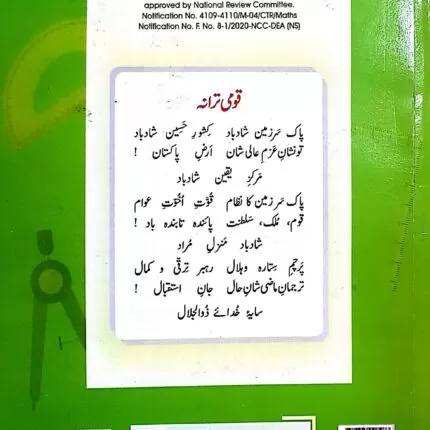 approved by National Review Committee.
Notification No. 4109-4110/M-04/CTR/Maths
Notification No. F. No. 8-1/2020-NCC-DEA (NS)
قومی ترانہ
پاک سَرزمین شادباد کِشورِ حَسِین شادباد
تُو نشانِ عَزمِ عالی شان اَرضِ پاکستان !
مَرکزِ یقین شادباد
پاک سَرزمین کا نظام قُوّتِ اُخُوّتِ عوام
قوم، مُلک، سَلطنت پائندہ تابندہ باد !
شادباد مَنزلِ مُراد
پَرچمِ سِتارہ و ہِلال رہبرِ ترقّی و کمال
ترجمانِ ماضی شانِ حال جانِ استقبال !
سایۂ خُدائے ذُوالجلال